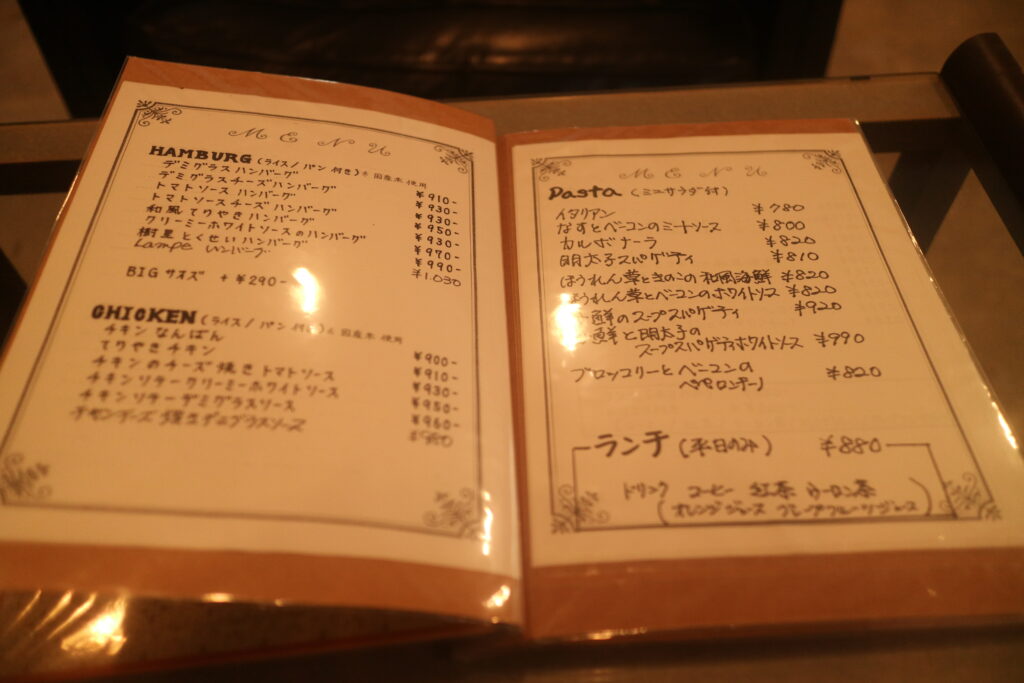 MENU
HAMBURG (ライス/パン付き)※国産米使用
デミグラスハンバーグ ¥910-
デミグラスチーズハンバーグ ¥930-
トマトソースハンバーグ ¥930-
トマトソースチーズハンバーグ ¥950-
和風てりやきハンバーグ ¥930-
クリーミーホワイトソースのハンバーグ ¥970-
樹里とくせいハンバーグ ¥990-
Lampe ハンバーグ ¥1.030
BIGサイズ +¥290-
CHICKEN (ライス/パン付き)※国産米使用
チキンなんばん ¥900-
てりやきチキン ¥910-
チキンのチーズ焼きトマトソース ¥930-
チキンソテークリーミーホワイトソース ¥950-
チキンソテーデミグラスソース ¥960-
チーズ焼きデミグラスソース ¥980
MENU
Pasta (ミニサラダ付)
イタリアン ¥780
なすとベーコンのミートソース ¥800
カルボナーラ ¥820
明太子スパゲティ ¥810
ほうれん草ときのこの和風海鮮 ¥820
ほうれん草とベーコンのホワイトソース ¥820
鮮のスープスパゲティ ¥920
鮮と明太子の
スープスパゲティホワイトソース ¥990
ブロッコリーとベーコンの
ペペロンチーノ ¥820
ランチ (平日のみ) ¥880
ドリンク コーヒー 紅茶 ウーロン茶
(オレンジジュース グレープフルーツジュース)